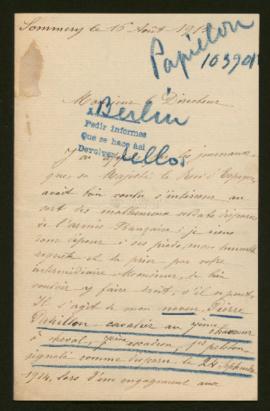 Sommery le 16 Août 191
Papillon
103901
Monsieur le Directeur
Berlin
Pedir informes
Que se hace así
Devolver sellos
J'ai par les journaux
que sa Majesté le Roi d'Espagne
avait bien voulu s'intéresser au
sort des malheureux soldats disparus
de l'armée Française; je viens
donc déposer à ses pieds mon humble
requête et le prier par votre
intermédiaire Monsieur, de bien
vouloir y faire droit, s'il se peut,
Il s'agit de mon neveu Pierre
Papillon cavalier au chasseur
à cheval, escadron, 1er peloton
signalé comme disparu le 24 septembre
1914, lors d'un engagement aux